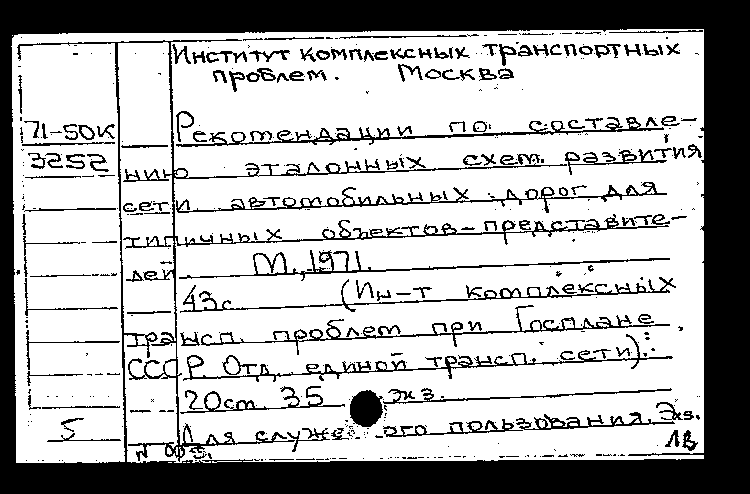 Институт комплексных транспортных
проблем. Москва
71-50К
3252
Рекомендации по составле-
нию эталонных схем развития
сети автомобильных дорог для
типичных объектов-представите-
лей. М., 1971.
43с. (Ин-т комплексных
трансп. проблем при Госплане
СССР. Отд. единой трансп. сети).
20см. 35 экз.
Для служе ого пользования. Экз.
N 003.
5
1В